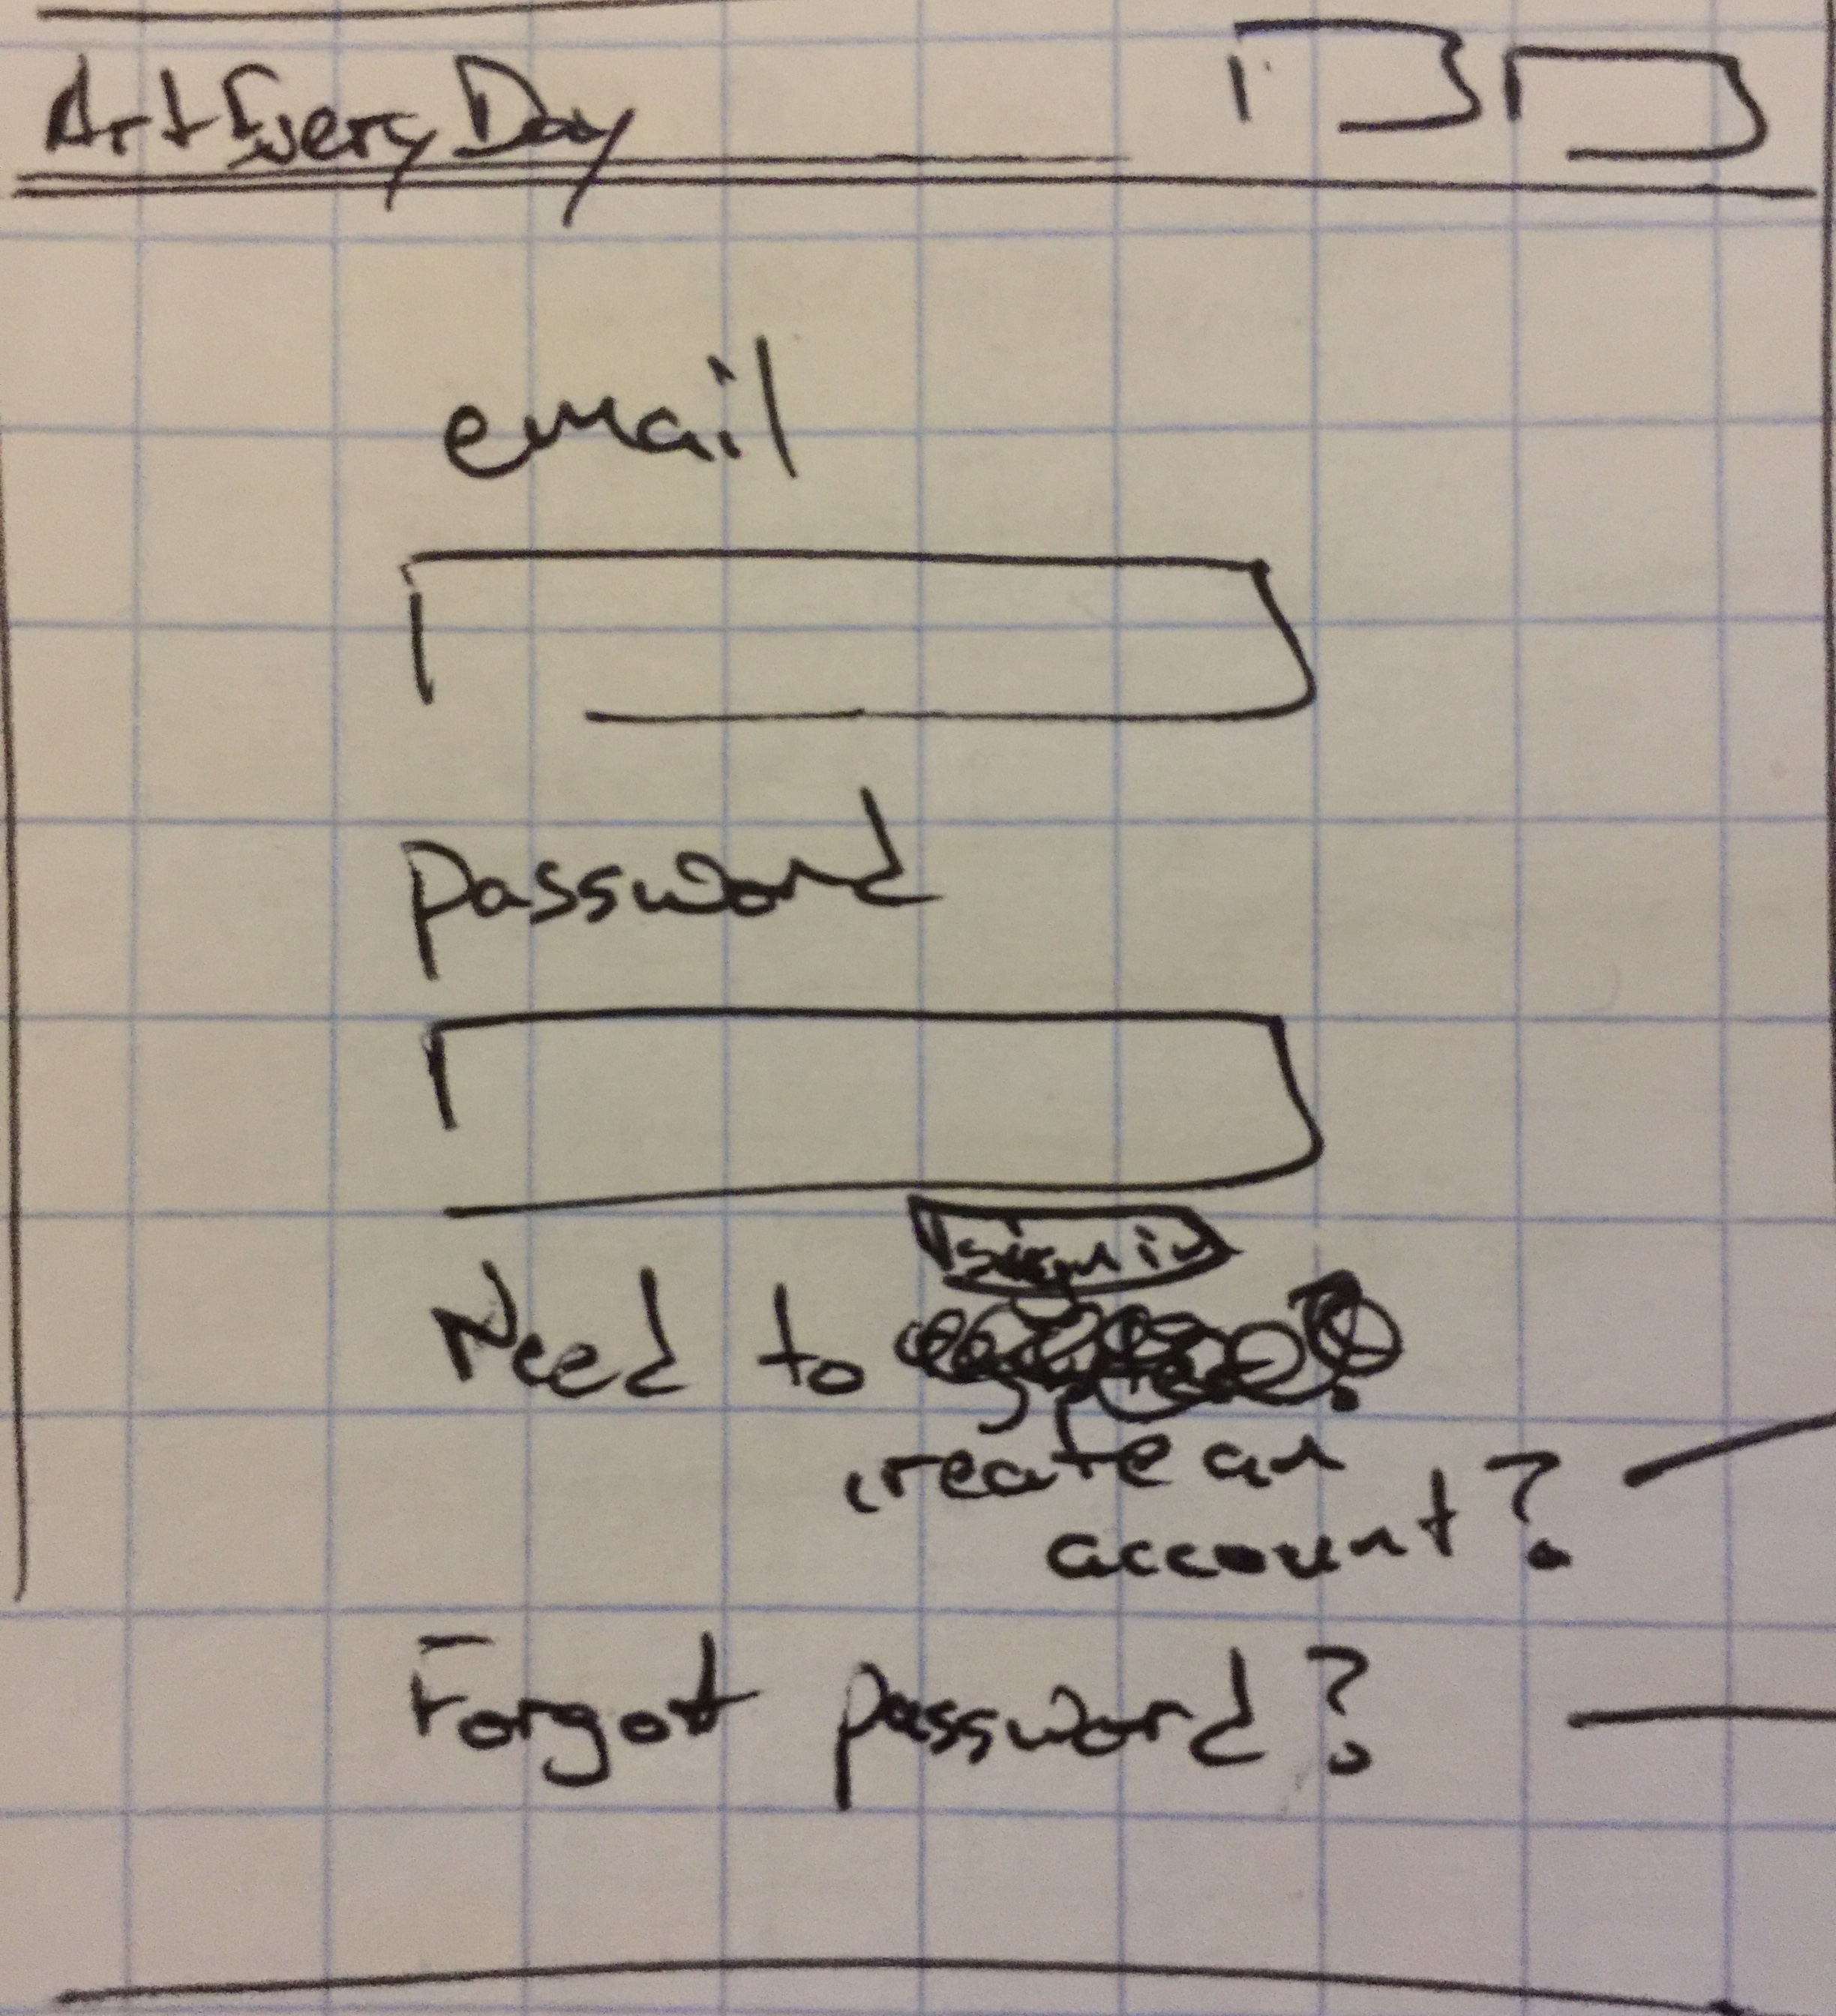 ArtEveryDay
email
password
sign in
Need to
create an
account?
Forgot password?